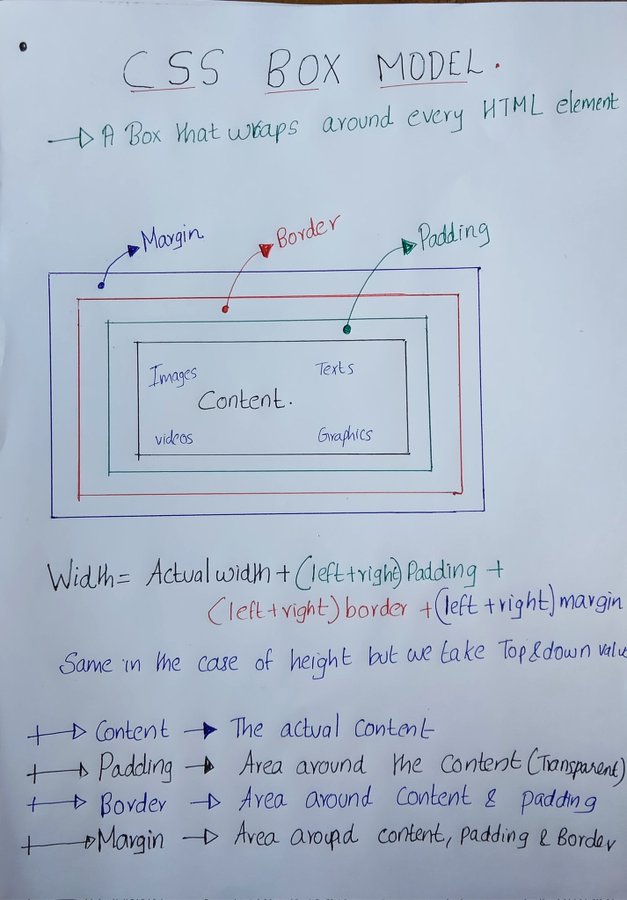 CSS BOX MODEL.
A Box that wraps around every HTML element
Margin Border Padding
Images Texts
Content.
videos Graphics
Width= Actual width + (left+right) Padding +
(left+right) border + (left+right) margin
Same in the case of height but we take Top & down value
Content The actual content
Padding Area around the content (Transparent)
Border Area around content & padding
Margin Area around content, padding & Border